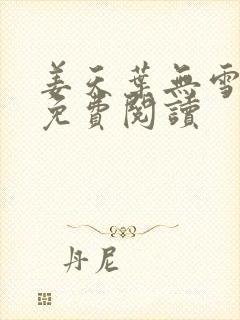 姜天葉無雪
免費閱讀
丹尼